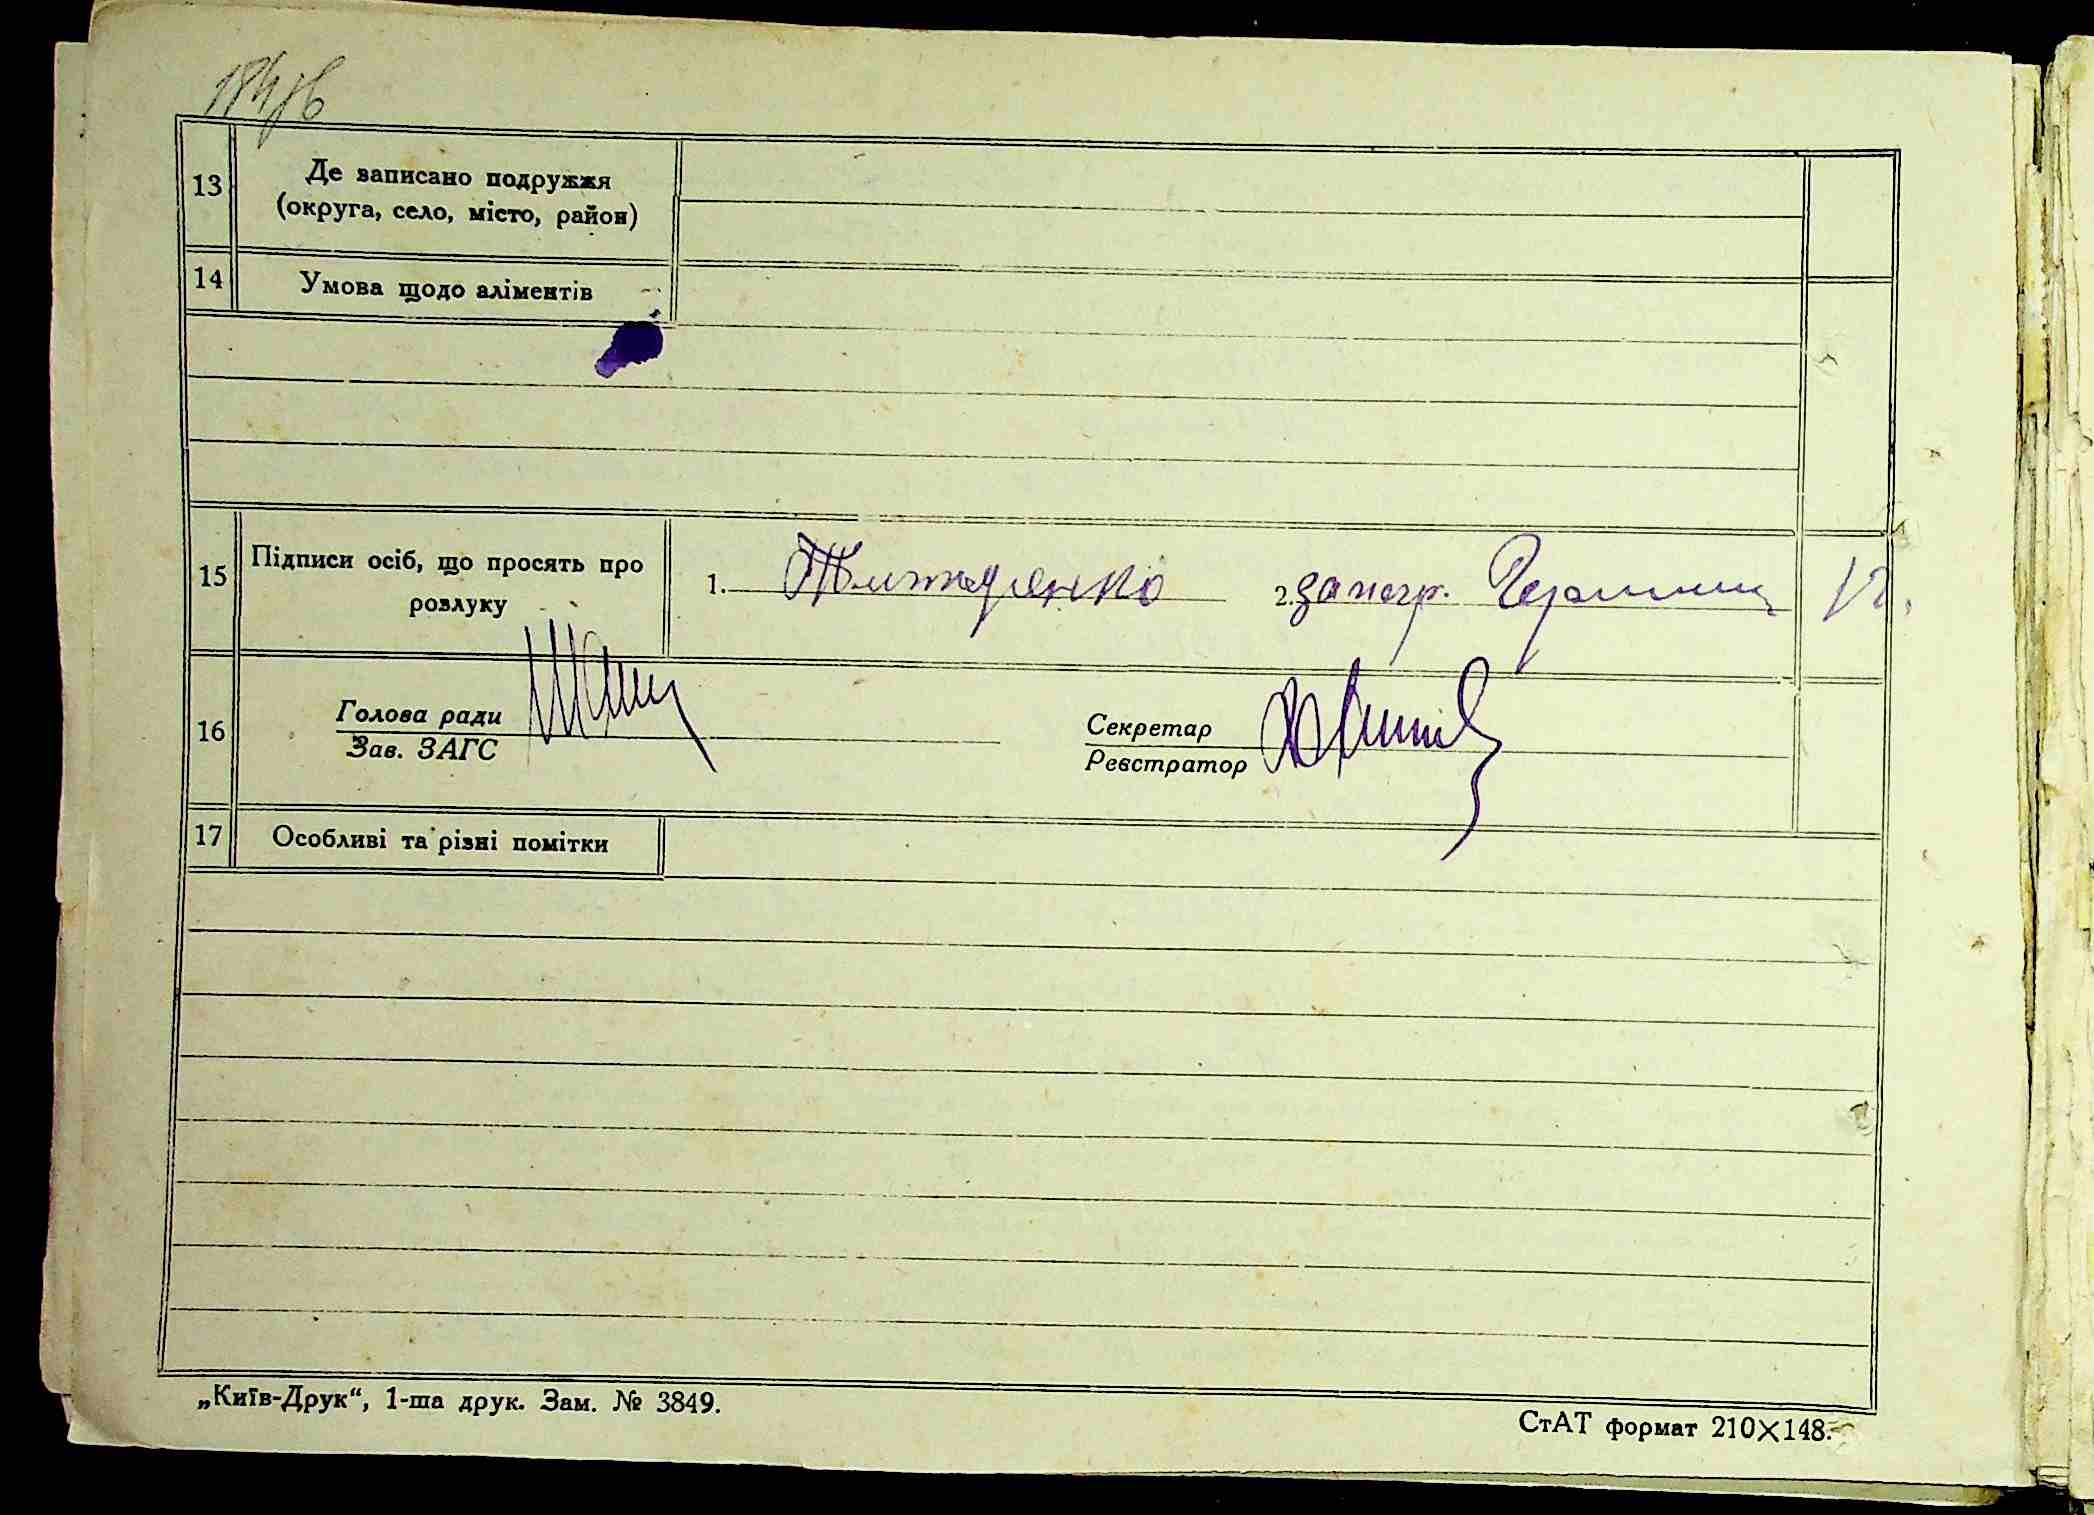 13
Де записано подружжя
(округа, село, місто, район)
14
Умова щодо аліментів
15
Підписи осіб, що просять про
розлуку
1.
2.
16
Голова ради
Зав. ЗАГС
Секретар
Реєстратор
17
Особливі та різні помітки
„Київ-Друк“, 1-ша друк. Зам. № 3849.
СтАТ формат 210×148.